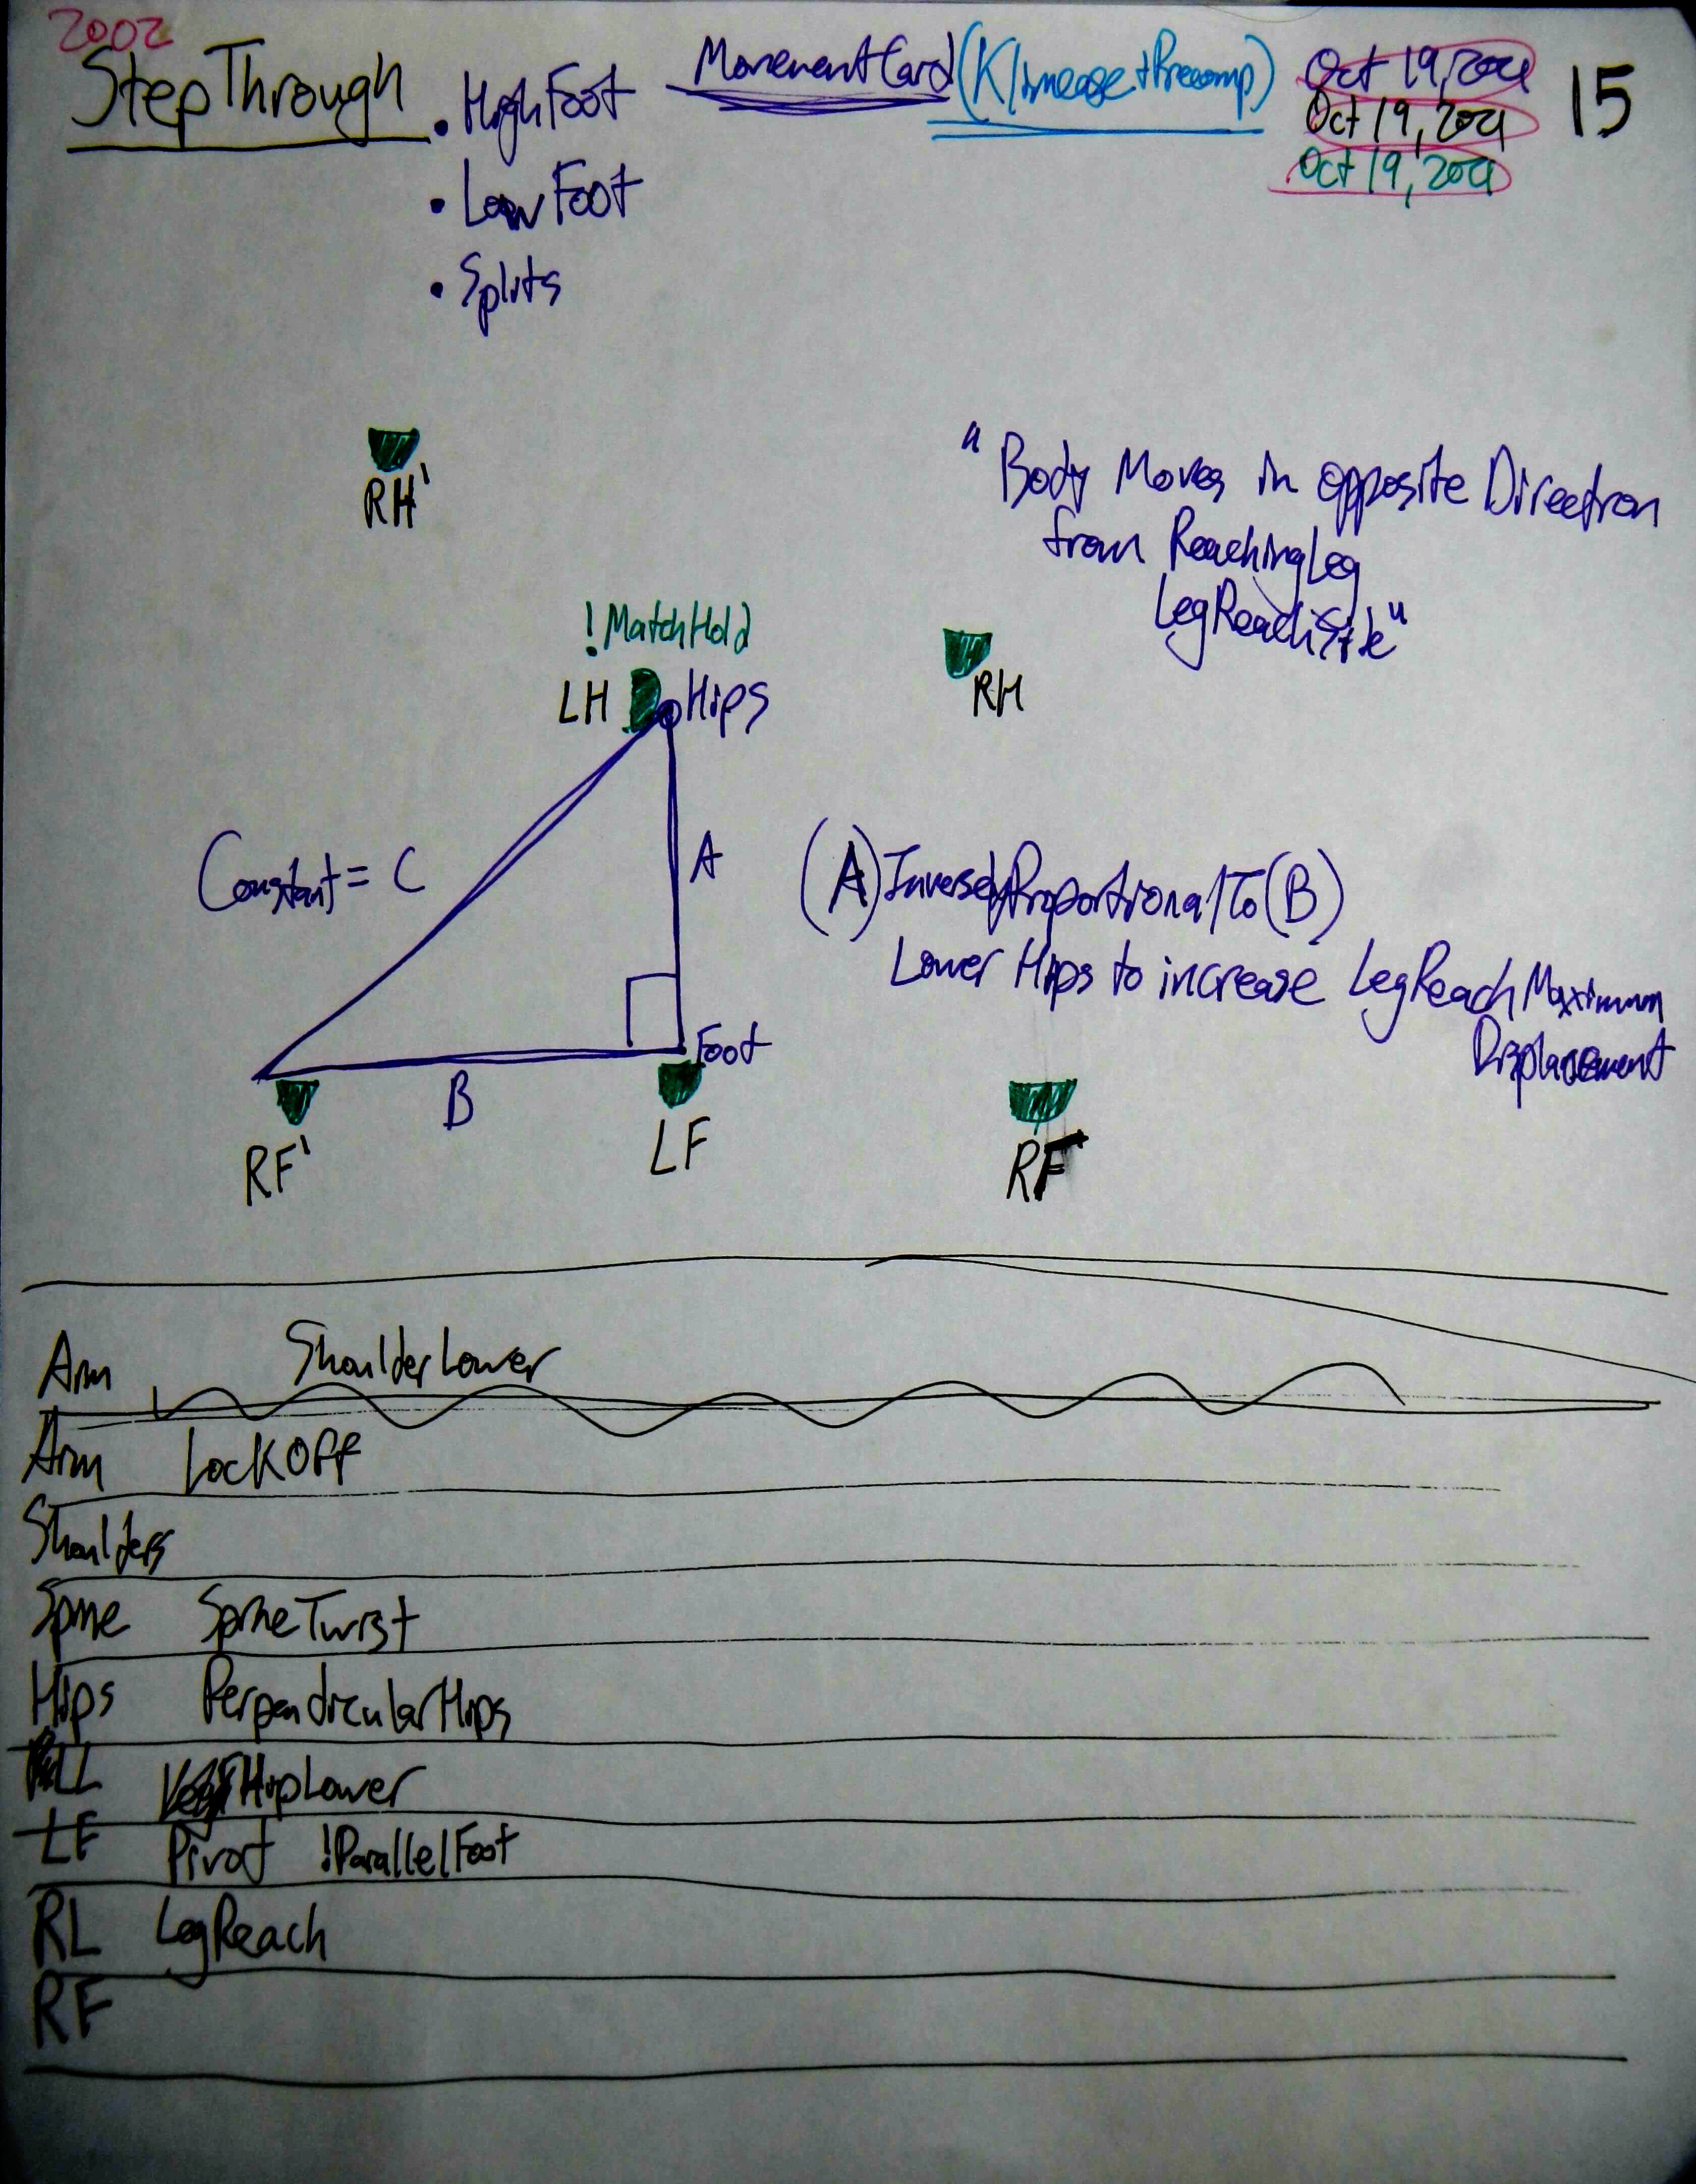 2002
StepThrough
• HighFoot
• LowFoot
• Splits
MovementCard
Oct 19, 2021
Oct 19, 2021
Oct 19, 2021
15
RH'
"Body Moves in opposite Direction
from ReachingLeg
LegReach
!MatchHold
LH
Hips
RH
Constant = C
A
(A)InverselyProportionalTo(B)
Lower Hips to increase LegReach Maximum
Displacement
Foot
B
RF'
LF
RF
Arm ShoulderLower
Arm LockOff
Shoulders
Spine SpineTwist
Hips PerpendicularHips
LL HipLower
LF Pivot !ParallelFoot
RL LegReach
RF